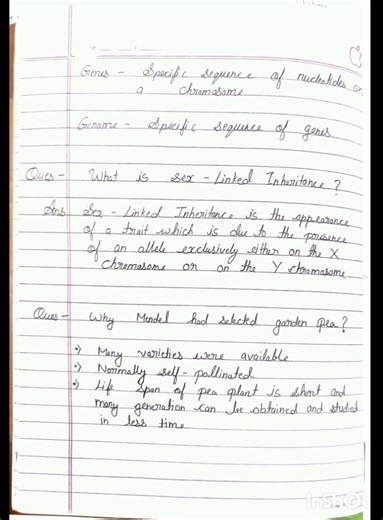 Genes - Specific sequence of nucleotides on
a chromosome
Genome - Specific sequence of genes
Ques - What is sex - linked Inheritance ?
Ans Sex - Linked Inheritance is the appearance
of a trait which is due to the presence
of an allele exclusively either on the X
chromosome or on the Y chromosome.
Ques - Why Mendel had selected garden pea ?
⇒ Many varieties were available
⇒ Normally self - pollinated
⇒ Life span of pea plant is short and
many generation can be obtained and studied
in less time.
InShot